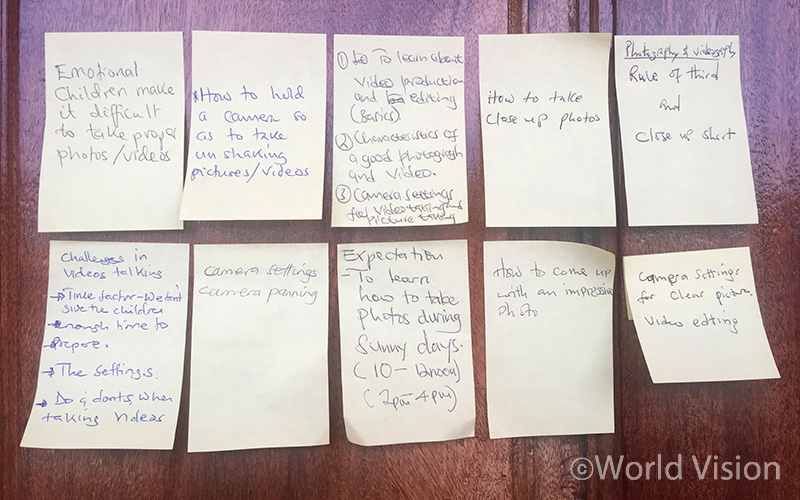 Emotional
Children make
it difficult
to take proper
photos/videos
How to hold
a camera so
as to take
un shaking
pictures/videos
① To learn about
Video production
and editing
(Basics)
② Characteristics of
a good photograph
and video.
③ Camera settings
for video taking and
Picture taking
How to take
close up photos
Photography & videography
Rule of third
and
close up short
Challenges in
videos talking
→ Time factor - We don't
give the children
enough time to
prepare.
→ The settings.
→ Do & donts, when
taking videos
Camera settings
Camera panning
Expectation
- To learn
how to take
photos during
Sunny days.
(10 - 12noon)
(2pm - 4pm)
How to come up
with an impressive
photo
Camera settings
for clear picture.
Video editing
©World Vision